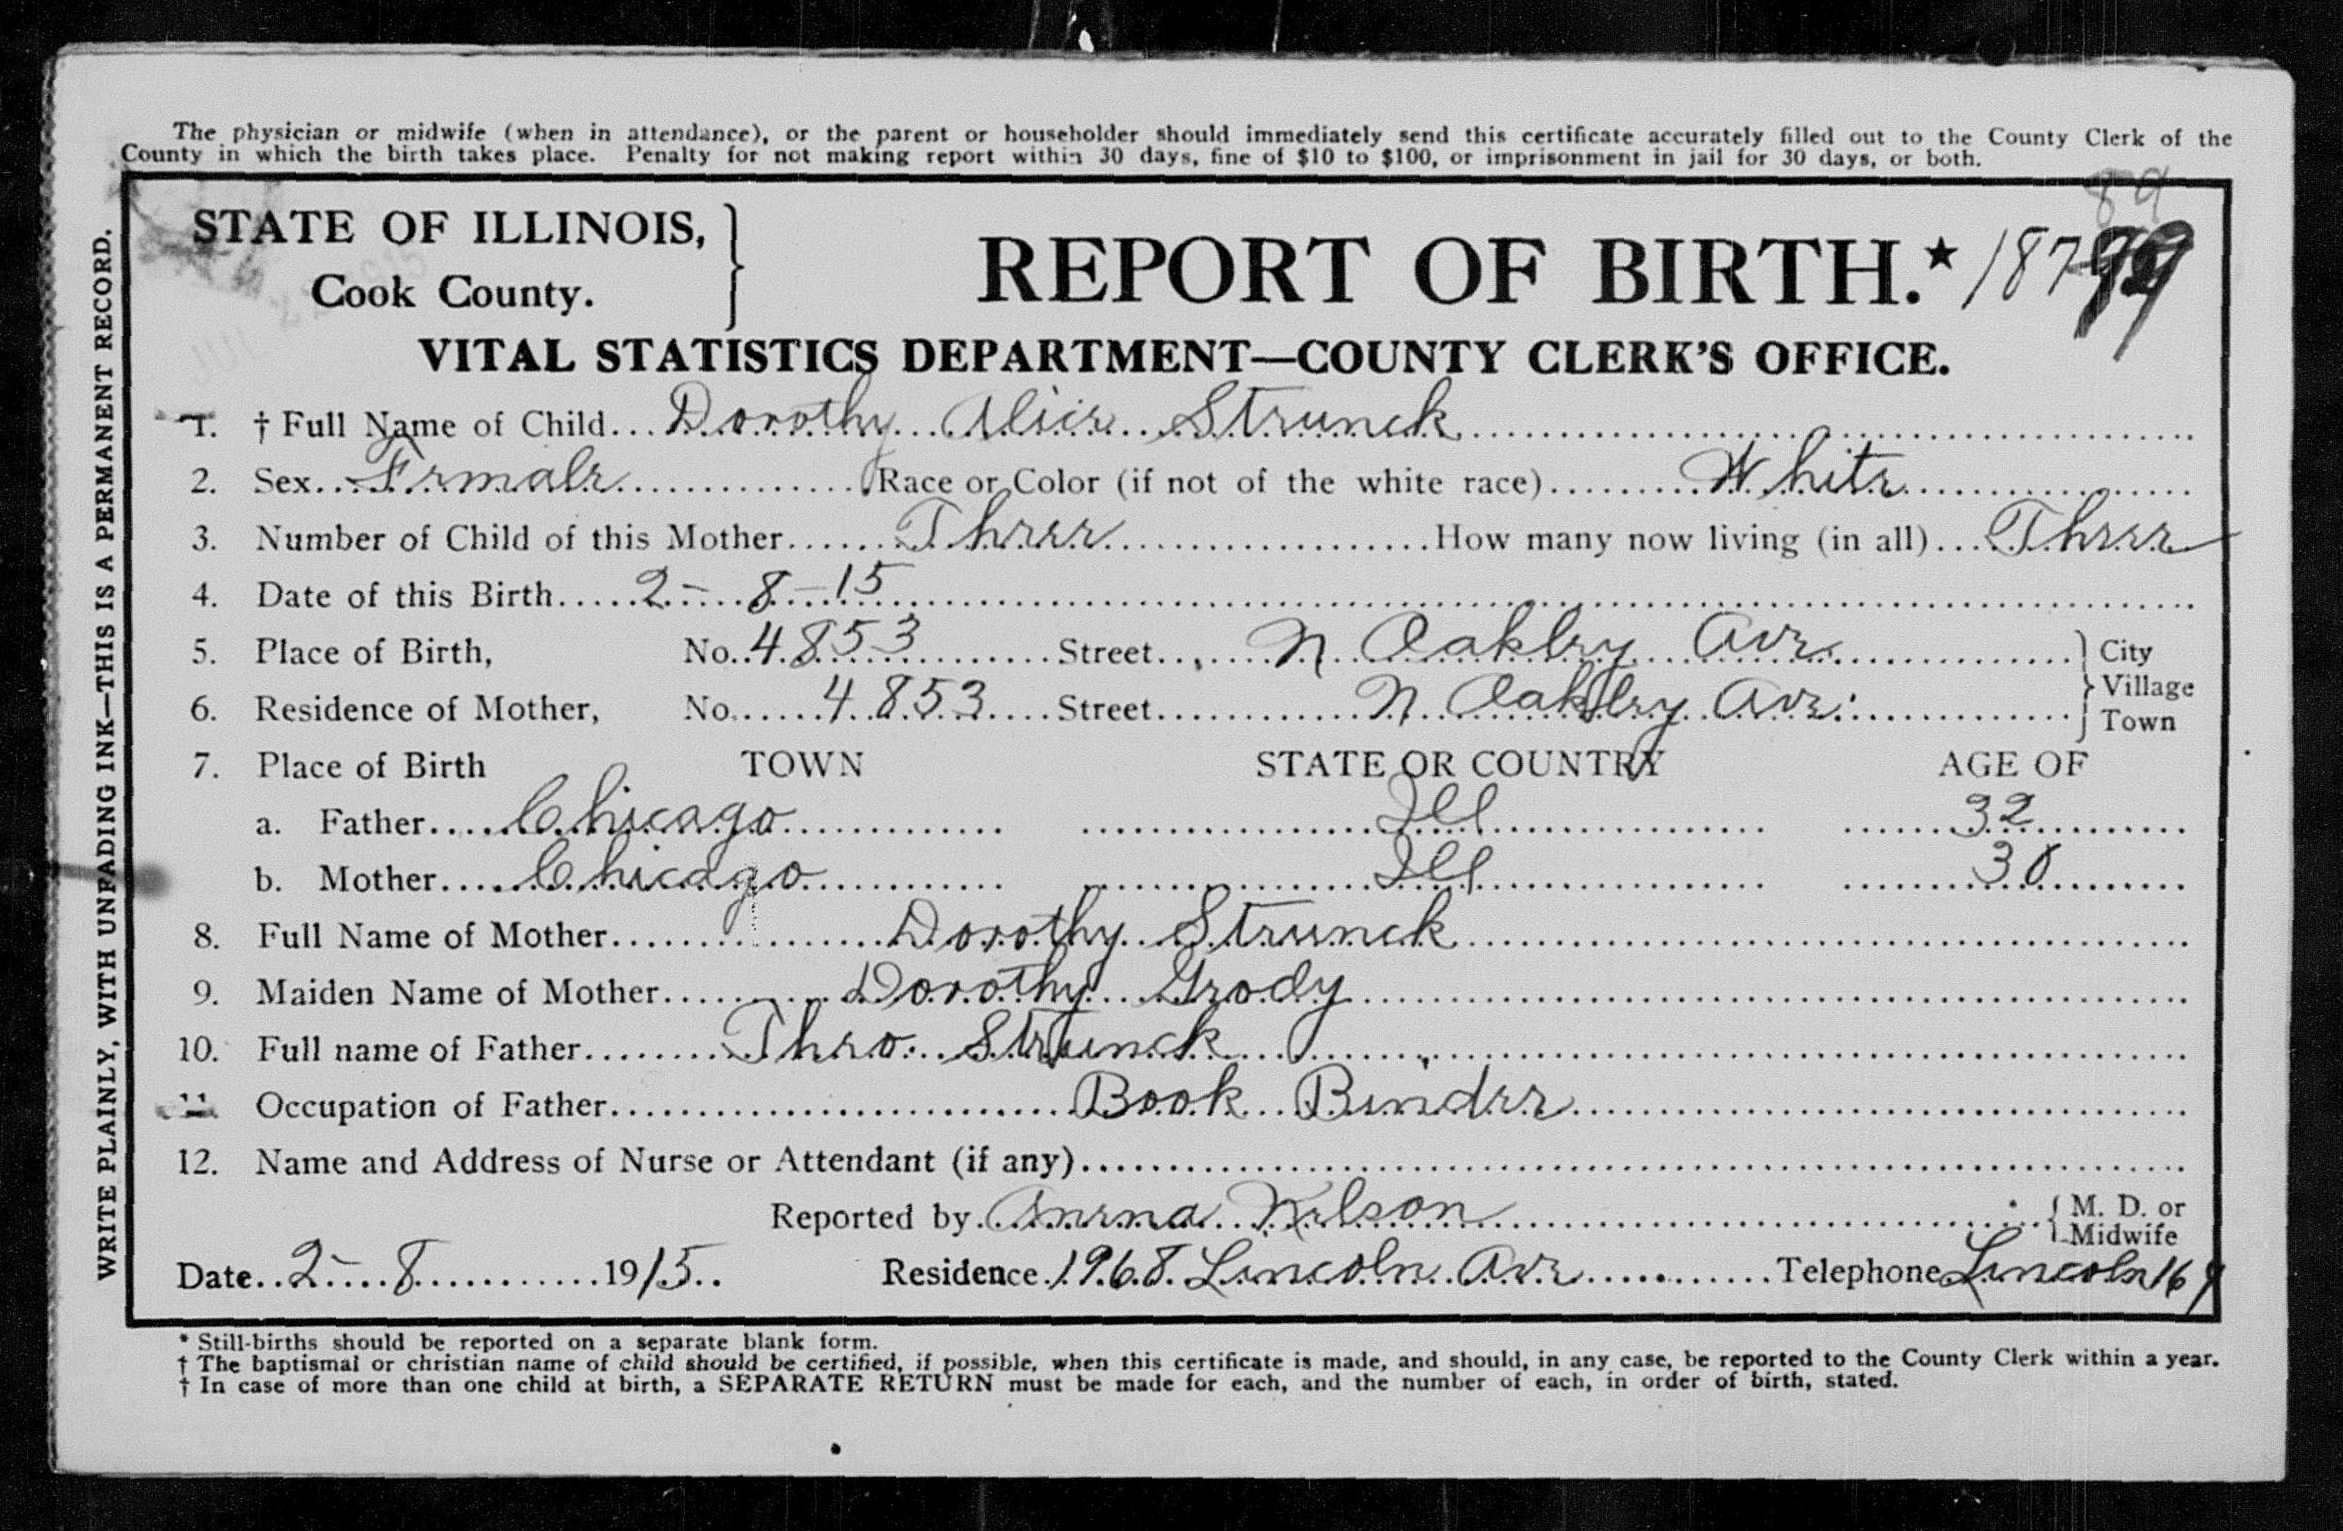 The physician or midwife (when in attendance), or the parent or householder should immediately send this certificate accurately filled out to the County Clerk of the
County in which the birth takes place. Penalty for not making report within 30 days, fine of $10 to $100, or imprisonment in jail for 30 days, or both.
WRITE PLAINLY, WITH UNFADING INK—THIS IS A PERMANENT RECORD.
89
STATE OF ILLINOIS,
Cook County.
REPORT OF BIRTH.*
VITAL STATISTICS DEPARTMENT—COUNTY CLERK'S OFFICE.
1. † Full Name of Child Dorothy Alice Strunck
2. Sex Female Race or Color (if not of the white race) White
3. Number of Child of this Mother Three How many now living (in all) Three
4. Date of this Birth 2-8-15
5. Place of Birth, No. 4853 Street N Oakley Ave. City
Village
6. Residence of Mother, No. 4853 Street N Oakley Ave. Town
7. Place of Birth TOWN STATE OR COUNTRY AGE OF
a. Father Chicago Ill 32
b. Mother Chicago Ill 30
8. Full Name of Mother Dorothy Strunck
9. Maiden Name of Mother Dorothy Grody
10. Full name of Father Theo. Strunck
11. Occupation of Father Book Binder
12. Name and Address of Nurse or Attendant (if any)
Reported by Nelson M. D. or
Midwife
Date 2-8 1915. Residence 1968 Lincoln Ave Telephone Lincoln
* Still-births should be reported on a separate blank form.
† The baptismal or christian name of child should be certified, if possible, when this certificate is made, and should, in any case, be reported to the County Clerk within a year.
† In case of more than one child at birth, a SEPARATE RETURN must be made for each, and the number of each, in order of birth, stated.